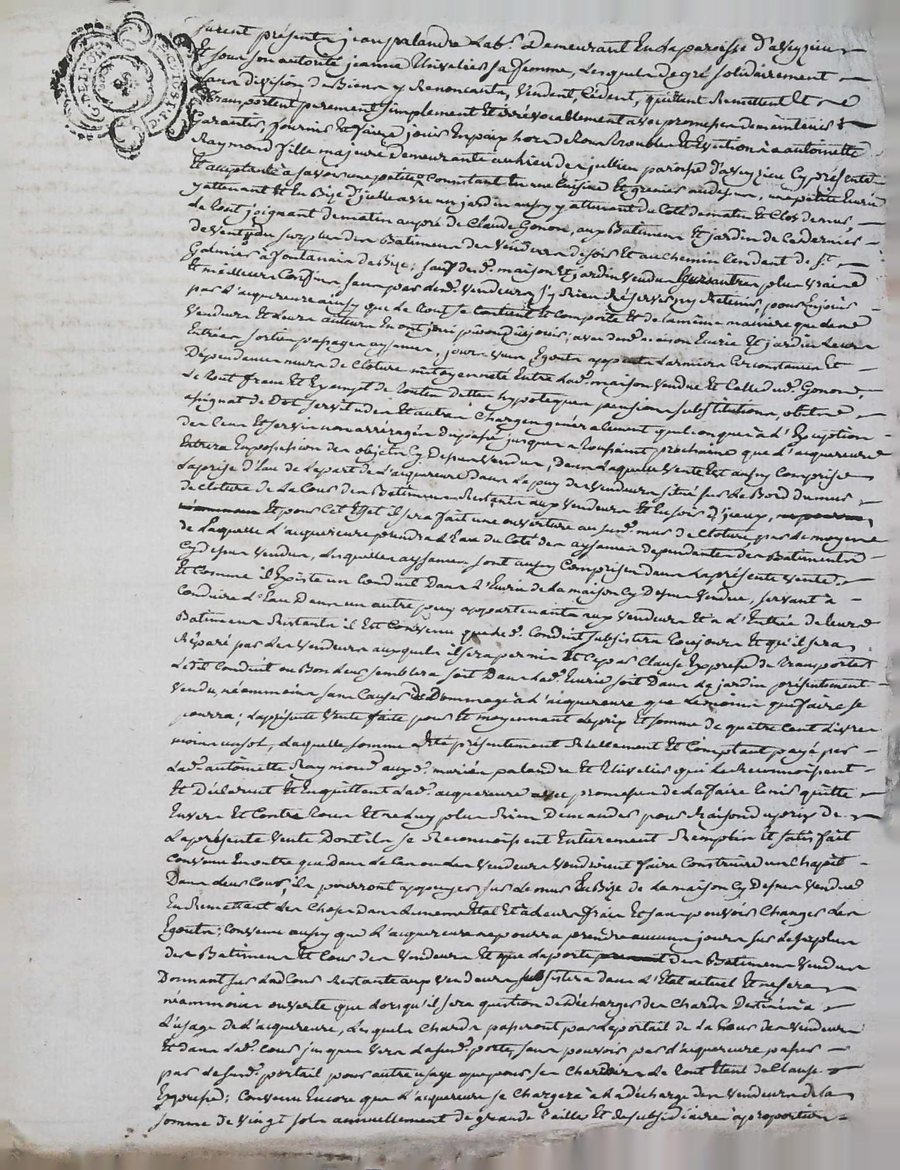 furent présents jean palandre Lab.r Demeurant En la paroisse d'aveyzieu
Et sous son autorité jeanne Thivelier sa femme, Lesquels de gré solidairement
sans division de Biens y Renonçants, Vendent, Cèdent, quittent Remettent Et
transportent purement simplement Et irrévocablement avec promesse de maintenir
Garantir, fournir Et faire jouir En paix hors de tous troubles Et Eviction à antoinette
Raymond fille majeure demeurante au lieu de jullien paroisse d'aveyzieu Cy présente
Et acceptante à savoir une petite Consistant En un Cuisine Et grenier au dessus, une petite Ecurie
y attenant Et En Bize d'icelle avec un jardin aussy y attenant du Coté de matin Et Clos de murs,
le tout joignant de matin au pré de Claude Gonon, aux Batiments Et jardin de Ce dernier
de vent, du surplus des Batiments des Vendeurs de soir Et au chemin tendant de S.t
Galmier à fontanais de Bize; sauf de d.e maison Et jardin Vendus leurs autres plus vrais
Et meilleurs Confins, sans par les d. Vendeurs s'y Rien Réserver ny Retenir, pour En jouir
par L'acquereure ainsy que Le tout se Contient Et Comporte Et de la même manière que les
Vendeurs Et leurs auteurs En ont joui pu ou dû jouir; avec des d. maison Ecurie Et jardin Leurs
Entrées sorties passages aysances, jours vues Egouts app Larmiers Circonstances Et
Dépendances murs de Cloture mitoyenneté Entre Lad. maison vendue Et Celle dud. Gonon,
Le tout franc Et Exempt de toutes dettes hypoteques pensions substitutions, obit
assignat de Dot servitudes Et autres Charges généralement quelconques à L'Exception
des Cens Et servis non arréragés du passé jusques à La prochaine que L'acquereure
Entrera En possession des objets Cy Dessus Vendus, dans Laquelle Vente Est aussy Comprise
La prise D'Eau de La part de L'acquereure dans Le puy des Vendeurs situé sur Le Bord du mur
de cloture de La Cour des Batiments Restants aux Vendeurs Et En soir D'iceux,
Et pour Cet Effet il sera fait une ouverture au susd. mur de Cloture, par Le moyen
de Laquelle L'acquereure prendra L'Eau du Coté des aysances dependantes des Batiments
Cy dessus Vendus, Lesquelles aysances sont aussy Comprises dans La présente Vente.
Et Comme il Existe un Conduit Dans L'Ecurie de La maison Cy Dessus Vendue, servant à
Conduire L'Eau Dans un autre puy appartenant aux Vendeurs Et à L'Entrée de leurs
Batiments Restants il Est Convenu que led. Conduit subsistera Toujours Et qu'il sera
Réparé par Les Vendeurs auxquels il sera permis Et Ce par Clause Expresse de transporter
Ledit Conduit ou Bon Leur semblera soit Dans Lad. Ecurie soit Dans Le jardin présentement
Vendu, néammoins sans Causer de Dommage à L'acquereure que Le moins que faire se
pourra; La présente Vente faite pour Et moyennant Le prix Et somme de quatre Cent Livres
moins un sol, Laquelle somme a Eté présentement Réellement Et Comptant payé par
Lad. antoinette Raymond aux d. mariés palandre Et Thivelier qui Le Reconnoissent
Et Déclarent Et En quittent Lad. acquereure avec promesse de La faire tenir quitte
Envers Et Contre tous Et ne Luy plus Rien Demander pour Raison du prix de
La présente Vente Dont ils se Reconnoissent Entierement Remplis Et satisfait
Convenu En outre que Dans Le Cas ou Les Vendeurs Voudroient faire Construire un Chapit
Dans Leur Cour, ils pourront appuyer sur Le mur En Bize de La maison Cy Dessus Vendue
En Remettant Les Choses Dans Le même Etat Et à Leurs frais Et sans pouvoir Changer Les
Egouts; Convenu aussy que L'acquereure ne pourra prendre aucuns jours sur Le surplus
des Batiments Et Cour des Vendeurs Et que La porte des Batiments Vendus
Donnant sur Lad. Cour Restante aux Vendeurs subsistera dans L'Etat actuel Et ne sera
néammoins ouverte que Lorsqu'il sera question de décharger des Chards Destinés à
L'usage de L'acquereure, Lesquels Chards passeront par Le portail de La Cour des Vendeurs
Et dans Lad. Cour jusques Vers La susd. porte, sans pouvoir par L'acquereure passer
par Le susd. portail pour autre usage que pour ses Chards Le tout Etant de Clause
Expresse; Convenu Encore que L'acquereure se Chargera à La décharge des Vendeurs de La
somme de Vingt sols annuellement de grande Taille Et de subsidiaire à proportion